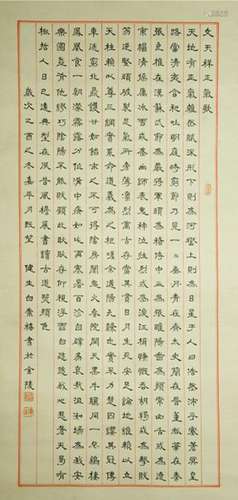 文天祥正氣歌
天地有正氣雜然賦流形下則為河嶽上則為日星于人曰浩然沛乎塞蒼冥皇
路當清夷含和吐明庭時窮節乃見一一垂丹青在齊太史簡在晉董狐筆在秦
張良椎在漢蘇武節為嚴將軍頭為嵇侍中血為張睢陽齒為顏常山舌或為遼
東帽清操厲冰雪或為出師表鬼神泣壯烈或為渡江楫慷慨吞胡羯或為擊賊
笏逆豎頭破裂是氣所磅礴凜烈萬古存當其貫日月生死安足論地維賴以立
天柱賴以尊三綱實繫命道義為之根嗟予遘陽九隸也實不力楚囚纓其冠傳
車送窮北鼎鑊甘如飴求之不可得陰房闃鬼火春院閟天黑牛驥同一皁雞棲
鳳凰食一朝濛霧露分作溝中瘠如此再寒暑百沴自辟易哀哉沮洳場為我安
樂國豈有他繆巧陰陽不能賊顧此耿耿存仰視浮雲白悠悠我心悲蒼天曷有
極哲人日已遠典型在夙昔風簷展書讀古道照顏色
歲次乙酉之冬嘉平月既望 健生白崇禧書於金陵